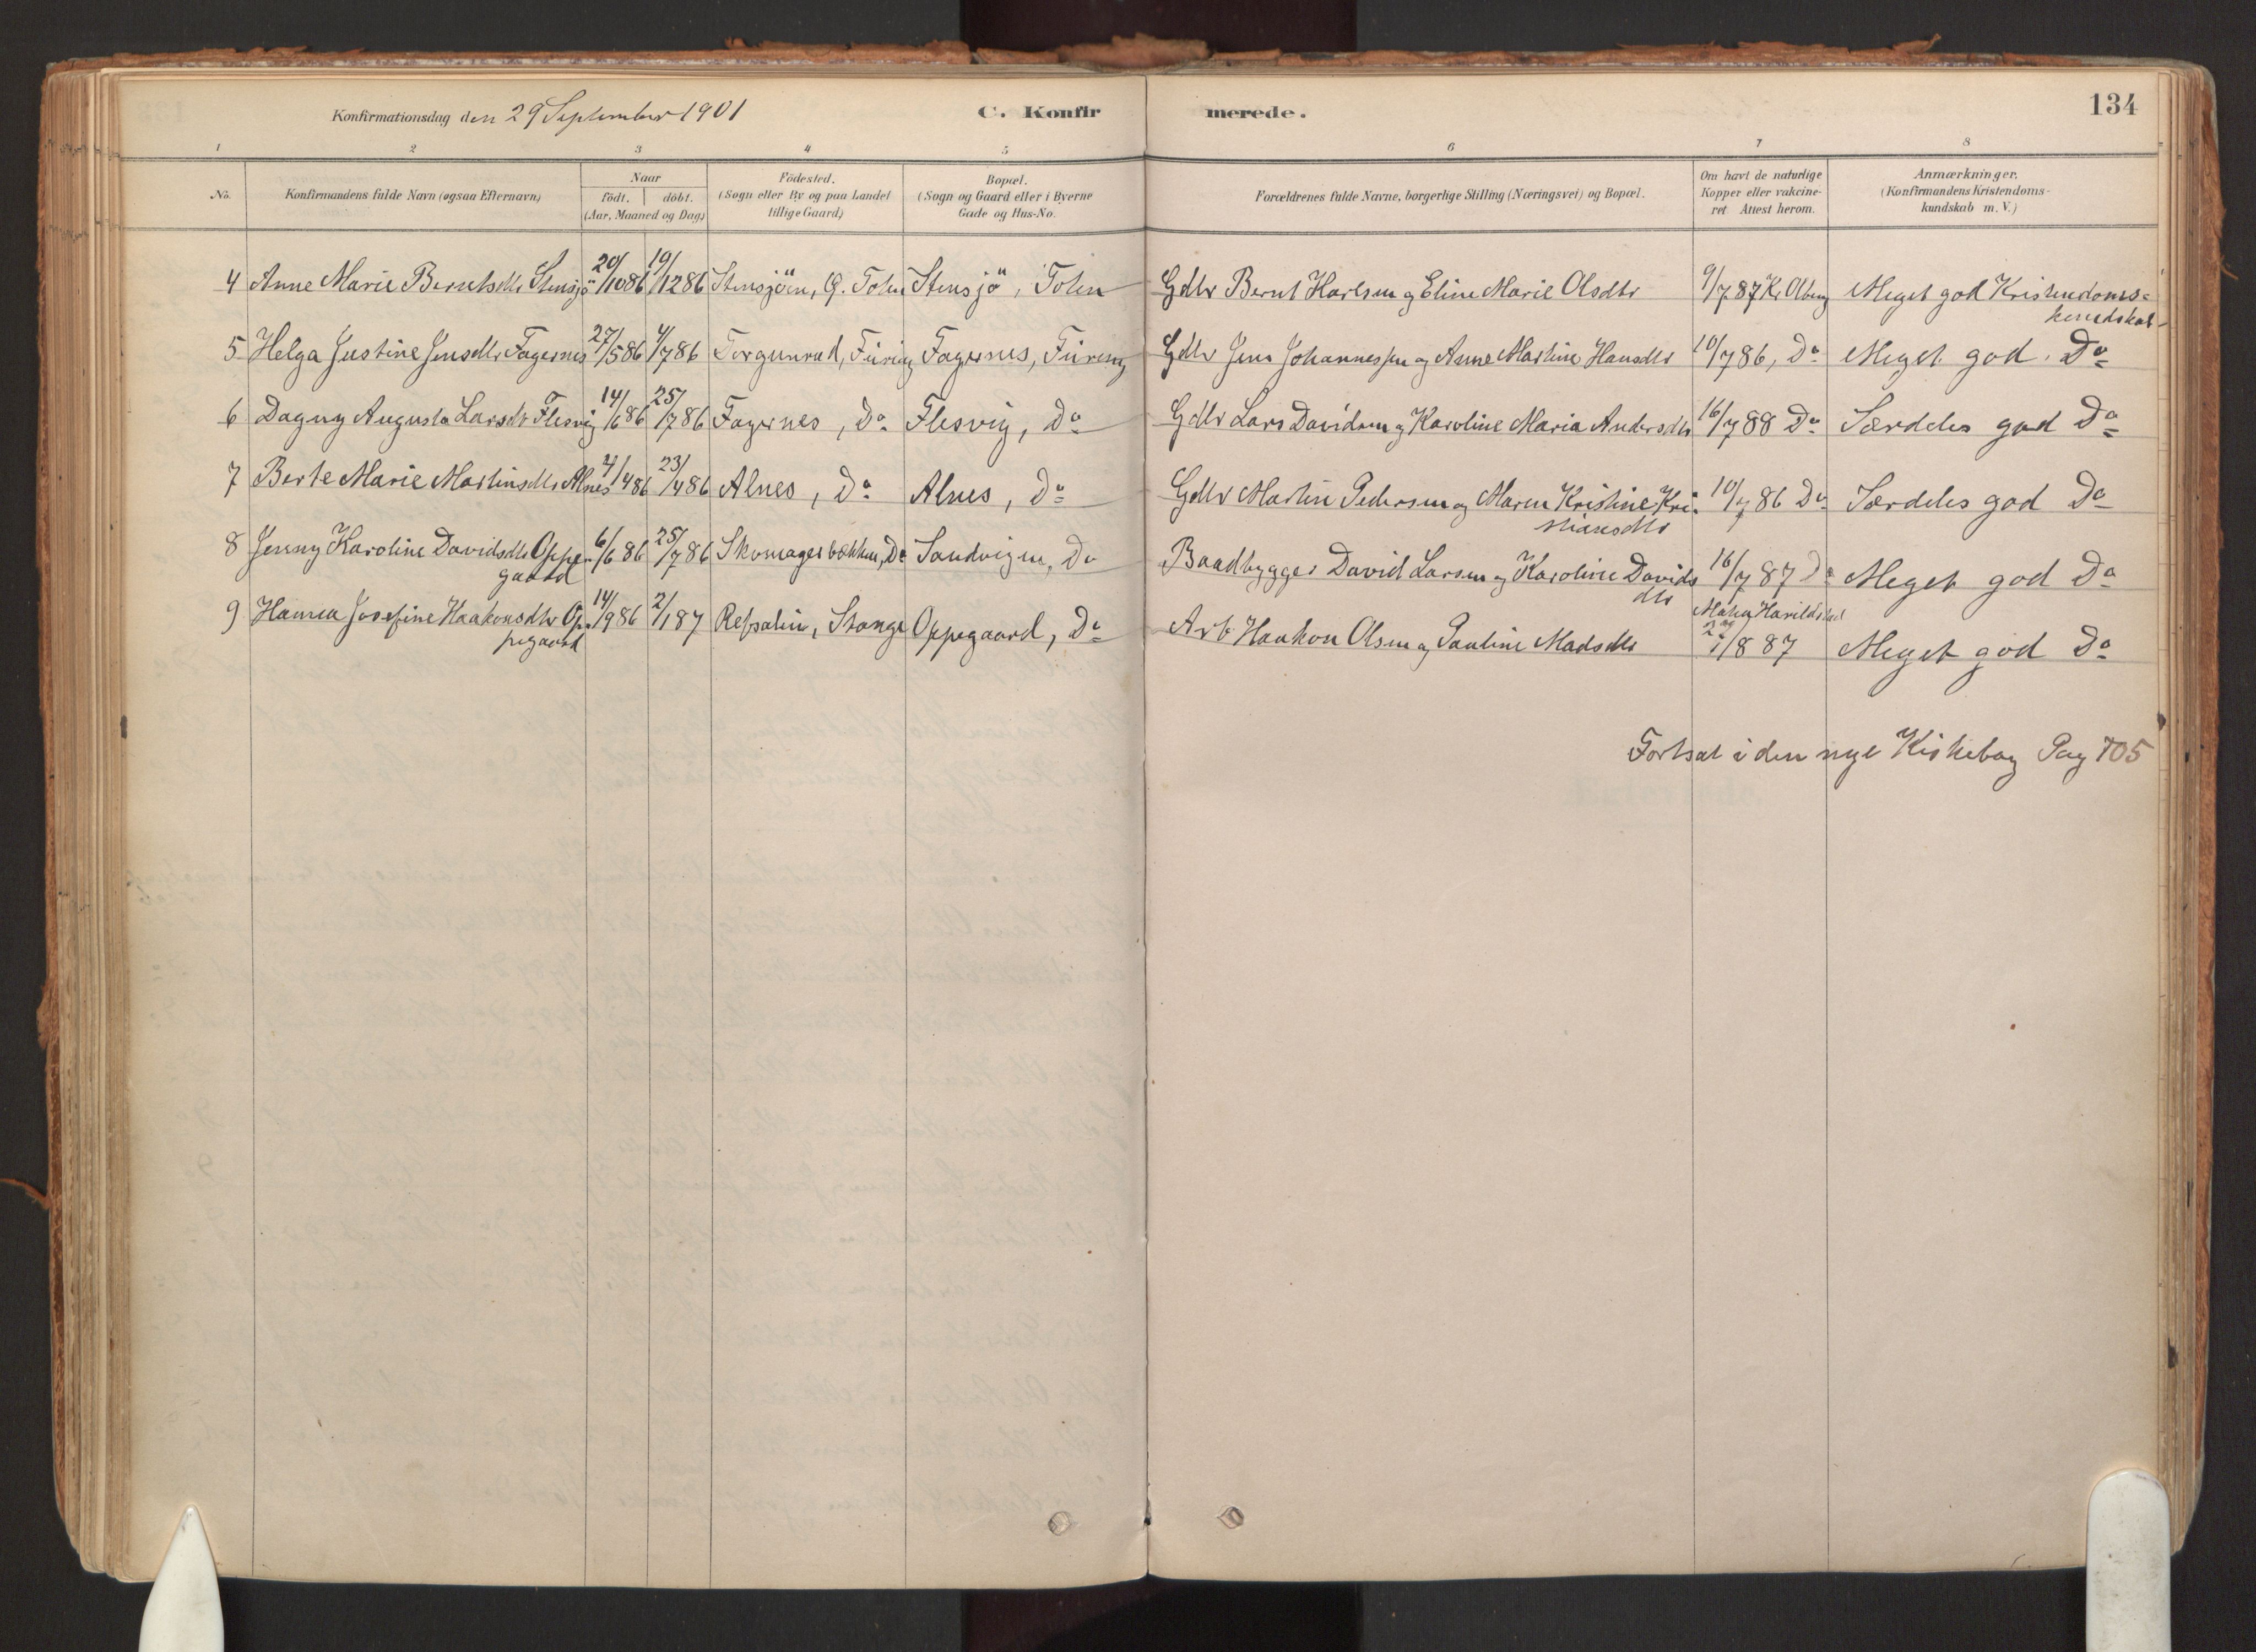 Konfirmationsdag den 29 September 1901 C. Konfirmerede. 134
1 2 3 4 5 6 7 8
No. Konfirmandens fulde Navn (ogsaa Efternavn) Naar født. døbt. (Aar, Maaned og Dag) Fødested. (Sogn eller By og paa Landet tillige Gaard) Bopæl. (Sogn og Gaard eller i Byerne Gade og Hus-No. Forældrenes fulde Navne, borgerlige Stilling (Næringsvei) og Bopæl. Om havt de naturlige Kopper eller vakcineret Attest herom. Anmærkninger. (Konfirmandens Kristendomskundskab m. V.)
4 Anne Marie Berntsdtr Stensjö 20/10 86 19/12 86 Stensjöen, Ø. Toten Stensjö, Toten Gdbr Bernt Karlsen og Eline Marie Olsdtr 9/7 87 K. Olberg Meget god Kristendoms=
kundskab
5 Helga Justine Jensdtr Fagernes 27/5 86 4/7 86 Torgunrud, Furnes Fagernes, Furnes Gdbr Jens Johannessen og Anne Martine Hansdtr 10/7 86, Do Meget god Do
6 Dagny Augusta Larsdtr Flesvig 14/6 86 25/7 86 Fagernes, Do Flesvig, Do Gdbr Lars Davidsen og Karoline Maria Andersdtr 16/7 88 Do Særdeles god Do
7 Berte Marie Martinsdtr Alnes 4/4 86 23/4 86 Alnes, Do Alnes, Do Gdbr Martin Pedersen og Maren Kristine Kri-
stiansdtr 10/7 86 Do Særdeles god Do
8 Jenny Karoline Davidsdtr Oppe-
gaard 6/6 86 25/7 86 Skomagerbækken, Do Sandvigen, Do Baadbygger David Larsen og Karoline Davids
dtr 16/7 87 Do Meget god Do
9 Hanna Josefine Haakonsdtr Op-
pegaard 14/9 86 2/1 87 Refsalin, Stange Oppegaard, Do Arb. Haakon Olsen og Pauline Madsdtr 8 87 Meget god Do
Fortsat i den nye Kirkebog Pag 105